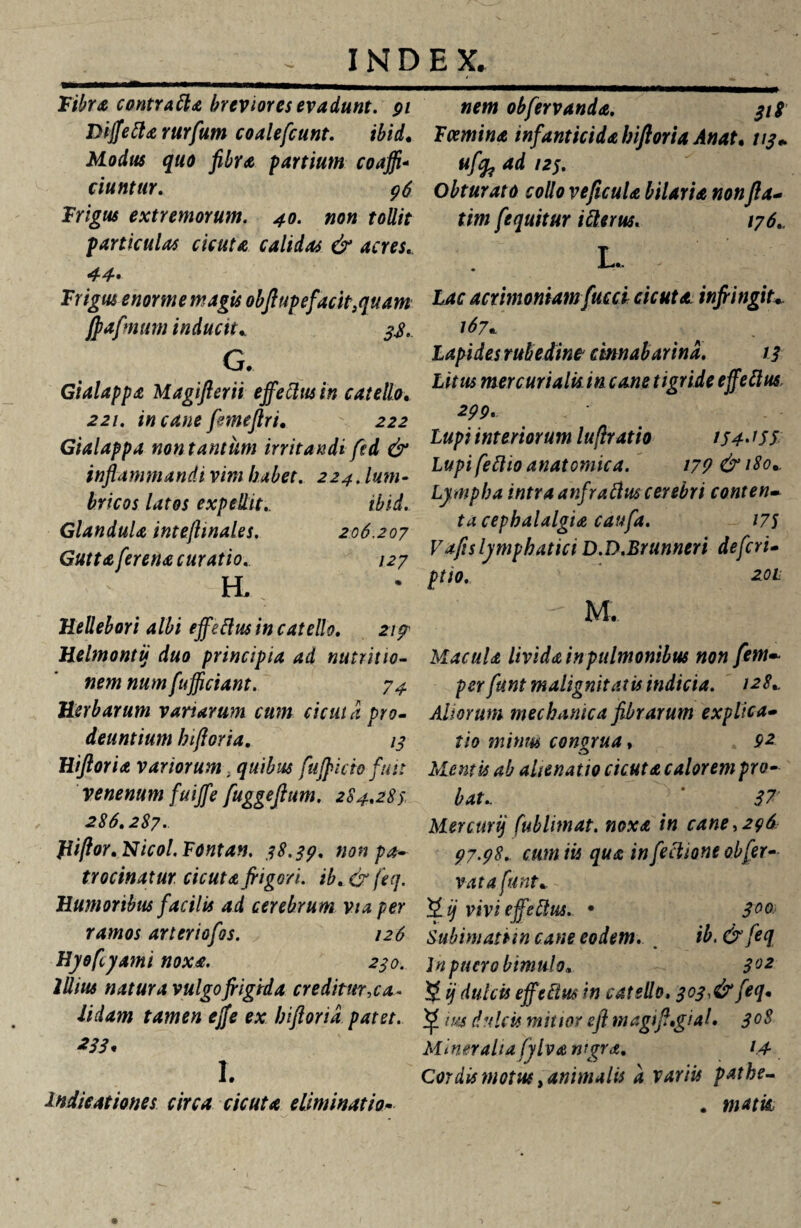 INDEX.
Fibræ contractæ breviores evadunt. 91
Dissectæ rursum coalescunt. ibid.
Modus quo fibræ partium coaffi-
ciuntur. 96
Frigus extremorum. 40. non tollit
particulas cicutæ calidas & acres.
44.
Frigus enorme magis obstupefacit, quam
spasmum inducit. 38.
G.
Gialappæ Magisterii effectus in catello.
221. in cane semestri. 222
Gialappa non tantùm irritandi sed &
inflammandi vim habet. 224. lum-
bricos latos expellit. ibid.
Glandulæ intestinales. 206.207
Guttæ serenæ curatio. 127
H.
Hellebori albi effectus in catello. 219
Helmontij duo principia ad nutritio-
nem num sufficiant. 74
Herbarum variarum cum cicutâ pro-
deuntium historia. 13
Historiæ variorum, quibus suspicio fuit
venenum fuisse suggestum. 284.285
286.287.
Histor. Nicol. Fontan. 38.39. non pa-
trocinatur cicutæ frigori. ib. & seq.
Humoribus facilis ad cerebrum via per
ramos arteriosos. 126
Hyoscyami noxæ. 230.
Illius natura vulgo frigida creditur, ca-
lidam tamen esse ex historiâ patet.
233.
I.
Indicationes circa cicutæ eliminatio-
nem observandæ. 318
Fœminæ infanticidæ historia Anat. 113.
usq; ad 125.
Obturato collo vesiculæ bilariæ non sta-
tim sequitur icterus. 176.
L.
Lac acrimoniam succi cicutæ infringit.
167.
Lapides rubedine cinnabarinâ. 13
Litus mercurialis in cane tigride effectus.
299.
Lupi interiorum lustratio 154.155
Lupi sectio anatomica. 179 & 180.
Lympha intra anfractus cerebri conten-
ta cephalalgiæ causa. 175
Vasis lymphatici D.D. Brunneri descri-
ptio. 201
M.
Maculæ lividæ in pulmonibus non sem-
per sunt malignitatis indicia. 128.
Aliorum mechanica fibrarum explica-
tio minus congrua, 92
Mentis ab alienatio cicutæ calorem pro-
bat. 37
Mercurij sublimat. noxæ in cane, 296
97.98. cum iis quæ in sectione obser-
vata sunt.
☿ ij vivi effectus. 300
Subimati in cane eodem. ib. & seq
In puero bimulo. 302
☿ ij dulcis effectus in catello. 303, & seq.
☿ ius dulcis mitior est magist. gial. 308
Mineralia sylvæ nigræ. 14
Cordis motus, animalis à variis pathe-
matis